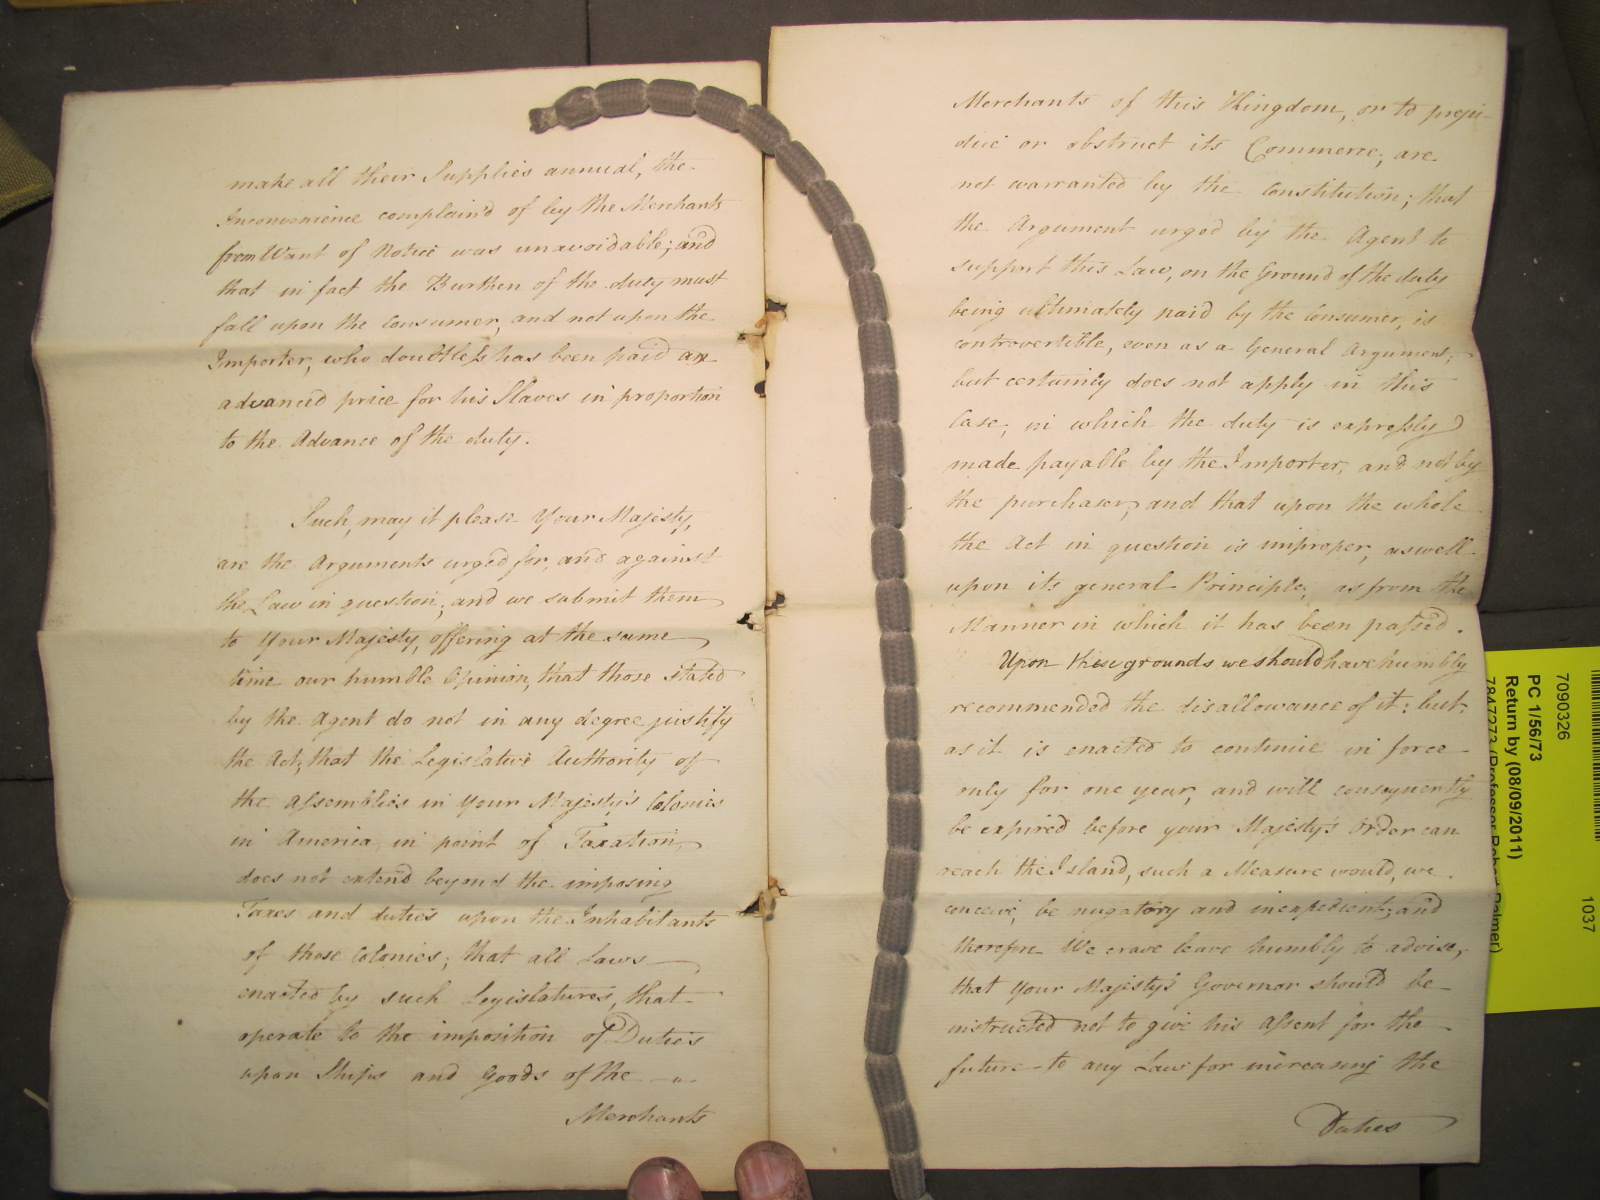 make all their Supplies annual, the
Inconvenience complain'd of by the Merchants
from Want of Notice was unavoidable; and
that in fact the Burthen of the duty must
fall upon the Consumer, and not upon the
Importer, who doubtless has been paid an
advanced price for his Slaves in proportion
to the Advance of the duty.
Such, may it please Your Majesty,
are the Arguments urged for, and against
the Law in question; and we submit them
to Your Majesty, offering at the same
time our humble Opinion, that those stated
by the Agent do not in any degree justify
the Act; that the Legislative Authority of
the Assemblies in Your Majesty's Colonies
in America, in point of Taxation,
does not extend beyond the imposing
Taxes and duties upon the Inhabitants
of those Colonies; that all Laws
enacted by such Legislatures, that
operate to the imposition of Duties
upon Ships and Goods of the
Merchants
Merchants of this Kingdom, or to preju-
dice or obstruct its Commerce, are
not warranted by the Constitution; that
the Argument urged by the Agent to
support this Law, on the Ground of the duty
being ultimately paid by the Consumer, is
controvertible, even as a General Argument;
but certainly does not apply in this
Case; in which the duty is expressly
made payable by the Importer, and not by
the purchaser, and that upon the whole
the Act in question is improper, as well
upon its general Principle, as from the
Manner in which it has been passed.
Upon these grounds we should have humbly
recommended the disallowance of it: but
as it is enacted to continue in force
only for one year, and will consequently
be expired before your Majesty's Order can
reach the Island, such a Measure would, we
conceive, be nugatory and inexpedient; and
therefore We crave leave humbly to advise,
that Your Majesty's Governor should be
instructed not to give his Assent for the
future to any Law for increasing the
Duties
7090326
PC 1/56/73
Return by (08/09/2011)
7847273 (Professor Robert Palmer)
1037